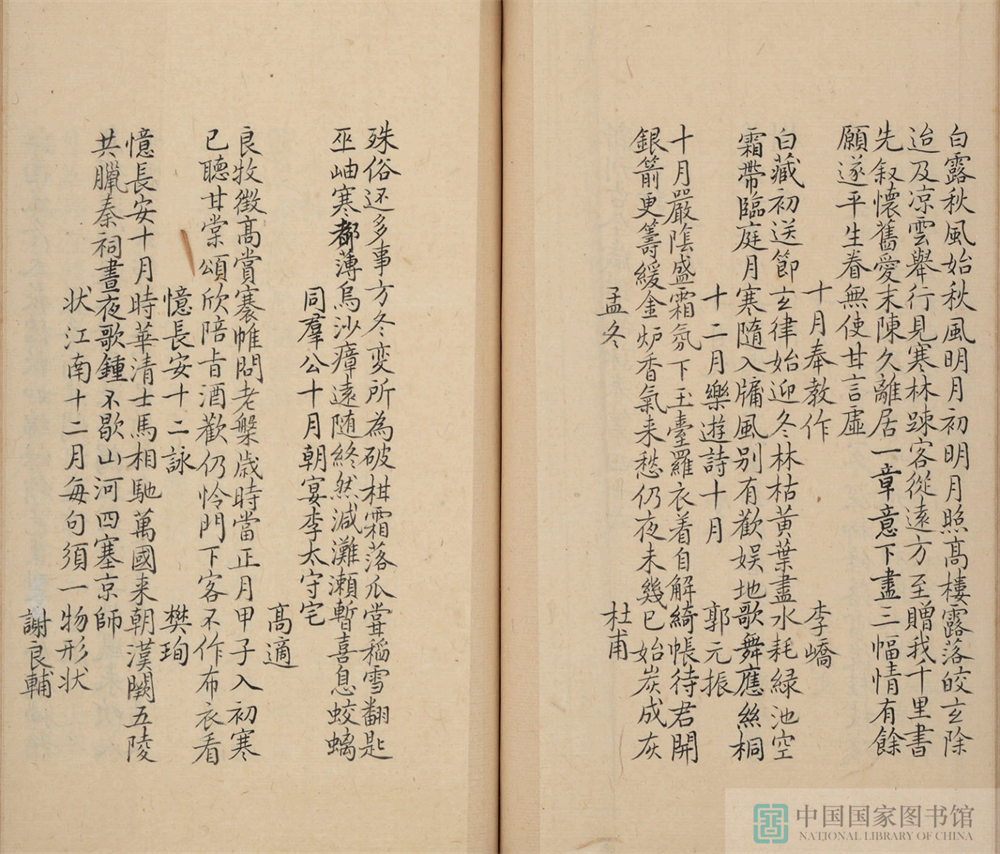 白露秋風始秋風明月初明月照高樓露落皎玄除
迨及凉雲舉行見寒林踈客從遠方至贈我千里書
先叙懷舊愛末陳久離居一章意下盡三幅情有餘
願遂平生眷無使甘言虛
十月奉教作 李嶠
白藏初送節玄律始迎冬林枯黄葉盡水耗緑池空
霜帶臨庭月寒隨入牖風别有歡娱地歌舞應絲桐
十二月樂遊詩十月 郭元振
十月嚴陰盛霜氛下玉臺羅衣着自解綺帳待君開
銀箭更籌緩金炉香氣来愁仍夜未幾已始炭成灰
孟冬 杜甫
殊俗还多事方冬变所為破柑霜落爪甞稲雪翻匙
巫岫寒都薄烏沙瘴遠随終然減灘瀬暫喜息蛟螭
同羣公十月朝宴李太守宅
高適
良牧徵高賞褰帷問老槃歳時當正月甲子入初寒
已聽甘棠頌欣陪旨酒歡仍怜門下客不作布衣看
憶長安十二詠 樊珣
憶長安十月時華清士馬相馳萬國来朝漢闕五陵
共臘秦祠晝夜歌鍾不歇山河四塞京師
状江南十二月每句須一物形状
謝良輔
中国国家图书馆
NATIONAL LIBRARY OF CHINA